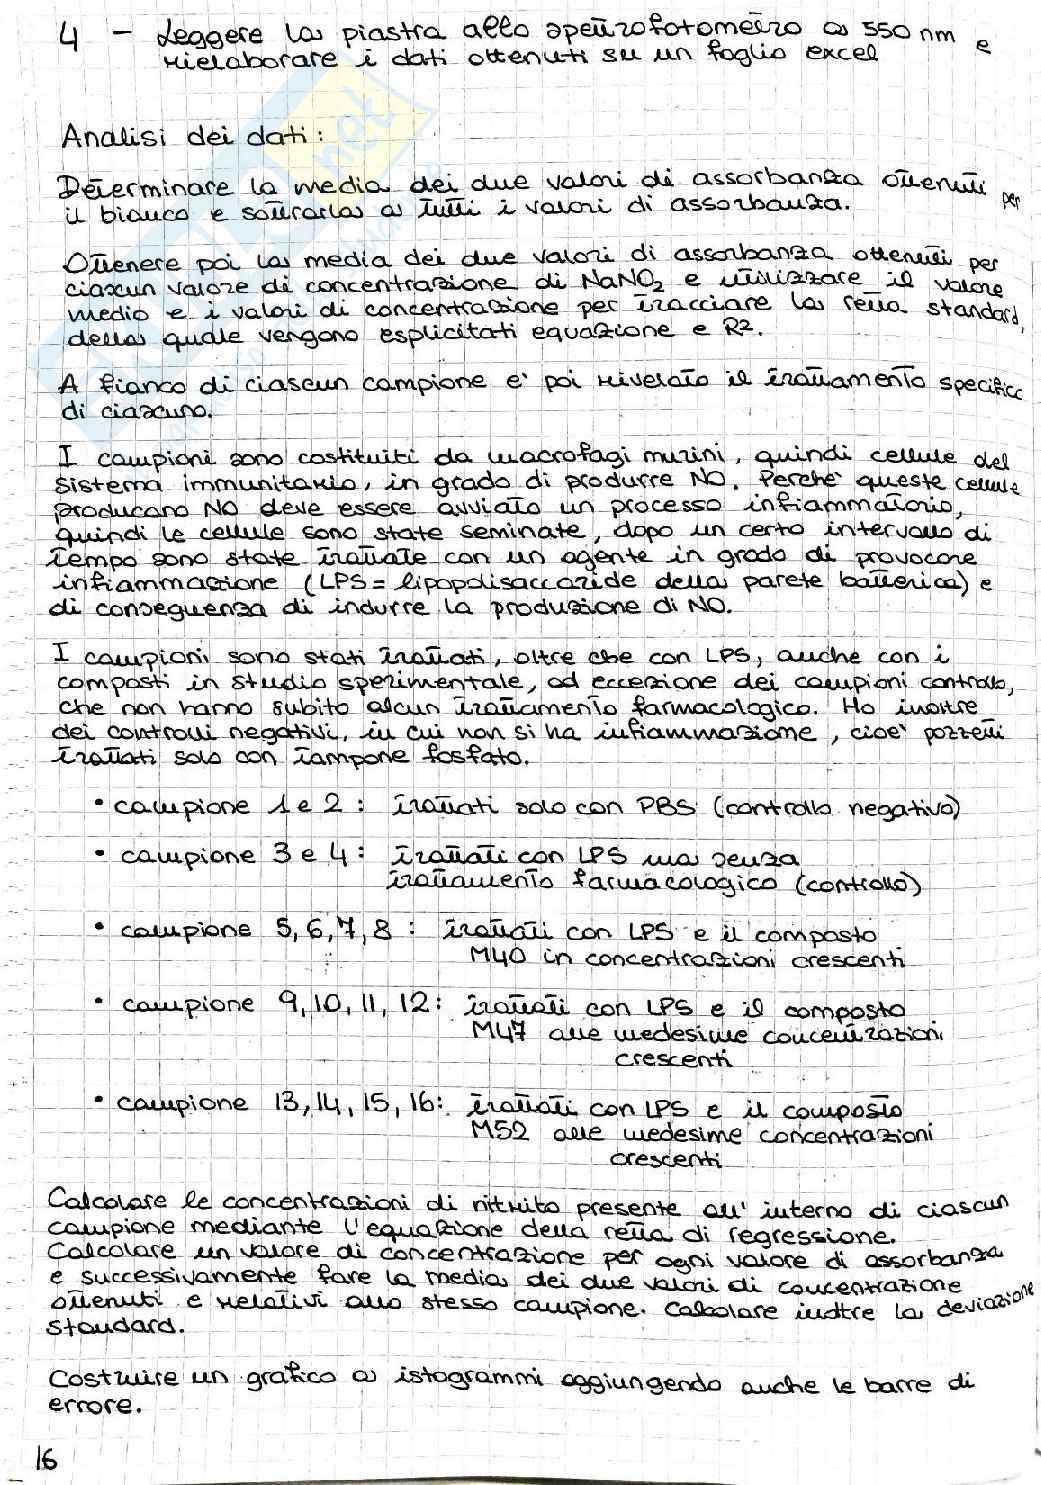 4 - Leggere la piastra allo spettrofotometro a 550 nm e
rielaborare i dati ottenuti su un foglio excel
Analisi dei dati:
Determinare la media dei due valori di assorbanza ottenuti per
il bianco e sottrarla a tutti i valori di assorbanza.
Ottenere poi la media dei due valori di assorbanza ottenuti per
ciascun valore di concentrazione di NaNO2 e utilizzare il valore
medio e i valori di concentrazione per tracciare la retta standard,
della quale vengono esplicitati equazione e R2.
A fianco di ciascun campione e' poi riversato il trattamento specifico
di ciascuno.
I campioni sono costituiti da macrofagi murini, quindi cellule del
sistema immunitario, in grado di produrre NO. Perche' queste cellule
producano NO deve essere avviato un processo infiammatorio,
quindi le cellule sono state seminate, dopo un certo intervallo di
tempo sono state trattate con un agente in grado di provocare
infiammazione (LPS = lipopolisaccaride della parete batterica) e
di conseguenza di indurre la produzione di NO.
I campioni sono stati trattati, oltre che con LPS, anche con i
composti in studio sperimentale, ad eccezione dei campioni controllo,
che non hanno subito alcun trattamento farmacologico. Ho inoltre
dei controlli negativi, in cui non si ha infiammazione, cioe' pozzetti
trattati solo con tampone fosfato.
• campione 1 e 2: trattati solo con PBS (controllo negativo)
• campione 3 e 4: trattati con LPS ma senza
trattamento farmacologico (controllo)
• campione 5, 6, 7, 8: trattati con LPS e il composto
M40 in concentrazioni crescenti
• campione 9, 10, 11, 12: trattati con LPS e il composto
M47 alle medesime concentrazioni
crescenti
• campione 13, 14, 15, 16: trattati con LPS e il composto
M52 alle medesime concentrazioni
crescenti
Calcolare le concentrazioni di nitrito presente all'interno di ciascun
campione mediante l'equazione della retta di regressione.
Calcolare un valore di concentrazione per ogni valore di assorbanza
e successivamente fare la media dei due valori di concentrazione
ottenuti e relativi allo stesso campione. Calcolare inoltre la deviazione
standard.
Costruire un grafico a istogrammi aggiungendo anche le barre di
errore.
16